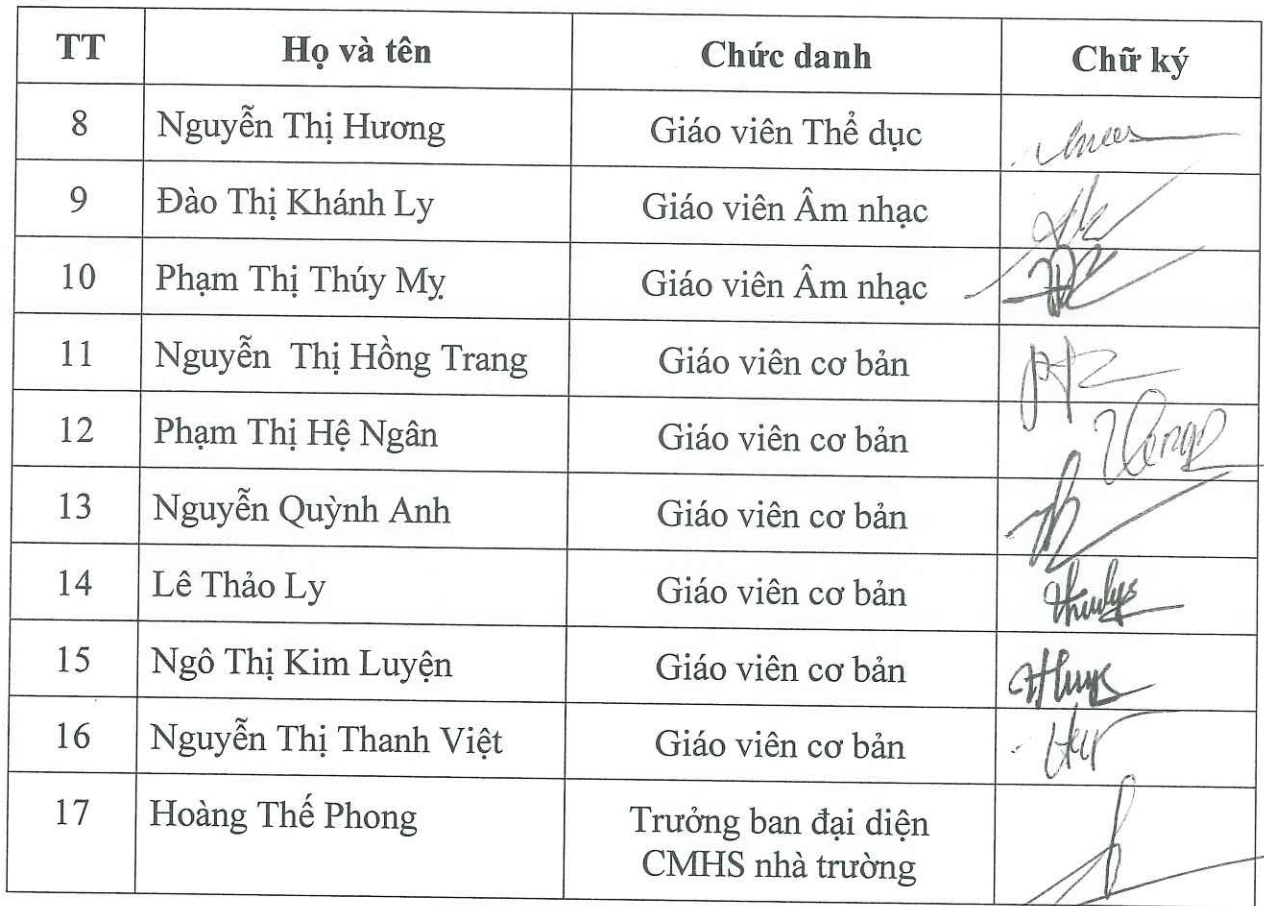 TT Họ và tên Chức danh Chữ ký
8 Nguyễn Thị Hương Giáo viên Thể dục
9 Đào Thị Khánh Ly Giáo viên Âm nhạc
10 Phạm Thị Thúy Mỵ Giáo viên Âm nhạc
11 Nguyễn Thị Hồng Trang Giáo viên cơ bản
12 Phạm Thị Hệ Ngân Giáo viên cơ bản
13 Nguyễn Quỳnh Anh Giáo viên cơ bản
14 Lê Thảo Ly Giáo viên cơ bản
15 Ngô Thị Kim Luyện Giáo viên cơ bản
16 Nguyễn Thị Thanh Việt Giáo viên cơ bản
17 Hoàng Thế Phong Trưởng ban đại diện
CMHS nhà trường